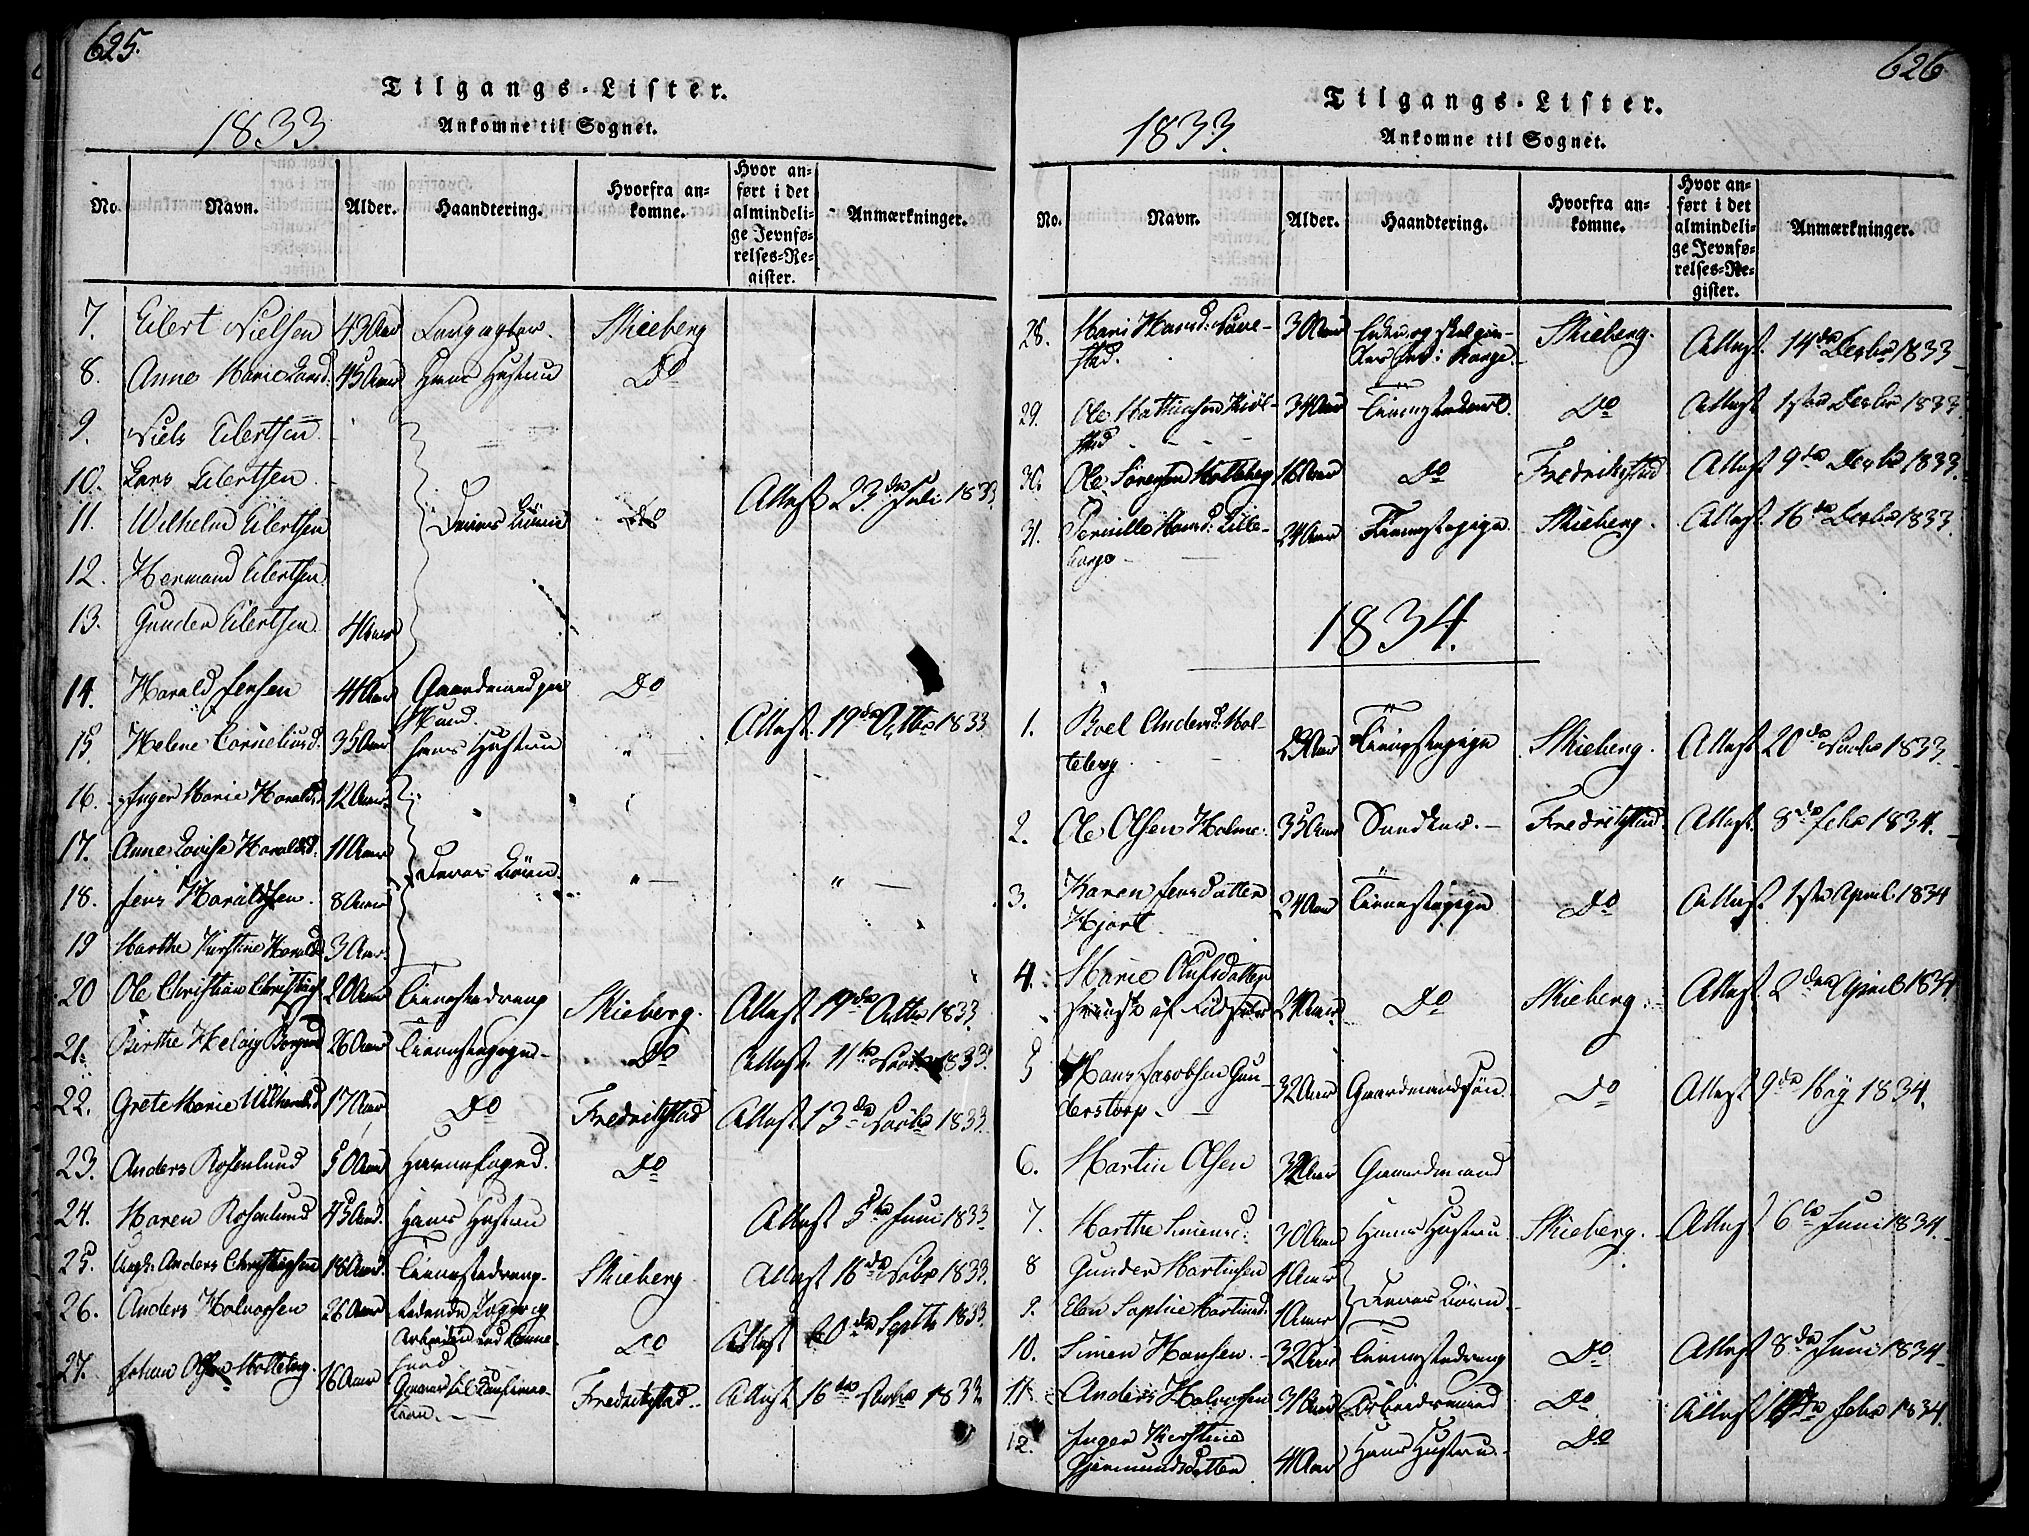 625.
Tilgangs-Lister.
1833.
Ankomne til Sognet.
No. Navn. Alder. Haandtering. Hvorfra an=
komne. Hvor an=
ført i det
almindeli=
ge Jevnfø=
relses=Re=
gister. Anmærkninger.
7. Eilert Nielsen 43 Aar Skieberg
8. Anne Marie Larsd. 45 Aar Hans Hustru Do
9. Niels Eilertsen
10. Lars Eilertsen
11. Wilhelm Eilertsen Deres Börn Do Attest 23de Juli 1833
12. Hermand Eilertsen
13. Gunder Eilertsen 4 Aar
14. Harald Jensen 41 Aar Gaardmand Do
15. Helene Corneliusd. 35 Aar Hans Hustru " Attest 19de Octbr 1833
16. Inger Marie Haraldsd. 12 Aar
17. Anne Lovise Haraldsd. 11 Aar Deres Börn
18. Jens Haraldsen. 8 Aar " — " —
19 Marthe Kirstine Haraldsd. 3 Aar
20 Ole Christian 20 Aar Tienestedreng Skieberg. Attest 19de Octbr 1833.
21. Birthe Helvig 26 Aar Tienestepige Do Attest 11te Novbr 1833.
22. Grete Marie Wilhelmsd. 17 Aar Do Fredrikstad Attest 13de Novbr 1833.
23. Anders Rosenlund 50 Aar Havnefoged. Do
24. Maren Rosenlund 45 Aar. Hans Hustru Attest 5te Juni 1833
25. Ungk. Anders Christiansen 18 Aar. Tienestedreng. Skieberg Attest 16de Novbr 1833.
26. Anders Halvorsen 26 Aar Do Attest 20de Septbr 1833.
27. Johan Olsen Holteberg. 16 Aar Fredrikstad. Attest 16de Novbr 1833.
626
Tilgangs-Lister.
1833.
Ankomne til Sognet.
No. Navn. Alder. Haandtering. Hvorfra an=
komne. Hvor an=
ført i det
almindeli=
ge Jevnfø=
relses=Re=
gister. Anmærkninger.
28. Mari Hansd: 30 Aar Skieberg. Attest. 14de Decbr 1833
stad.
29. Ole Mathisen 34 Aar Tienestekarl Do Attest 1ste Decbr 1833.
stad
30. Ole Sörensen Holteberg 16 Aar Do Fredrikstad Attest 9de Decbr 1833.
31. Pernille Hansd: Lille- 24 Aar Tienestepige Skieberg. Attest 16de Decbr 1833
borge
1834.
1. Boel Andersd: Hol-
teberg 23 Aar Tienestepige Skieberg. Attest 20de Novbr 1833.
2. Ole Olsen Holme. 35 Aar Fredrikstad. Attest. 8de Febr 1834.
3. Karen Jensdatter 24 Aar Tienestepige Do Attest 1ste April 1834
Hjort
4. Marie Olufsdatter
24 Aar Do Skieberg. Attest 2den April 1834
5 Hans Jacobsen Gun-
derstorp. 32 Aar Gaardmandssön. Do Attest 9de May 1834.
6. Martin Olsen 32 Aar Gaardmand
7. Marthe Simensd: 30 Aar Hans Hustru Skieberg. Attest 6te Juni 1834.
8 Gunder Martinsen 4 Aar
9. Elen Sophie Martinsd. 1 Aar Deres Börn
10. Simen Hansen. 32 Aar Tienestedreng Do Attest 8de Juni 1834
11. Anders Halvorsen 31 Aar Arbeidsmand Do Attest Febr 1834.
12. Inger Kirstine
Gjermundsdatter 41 Aar Hans Hustru. Do